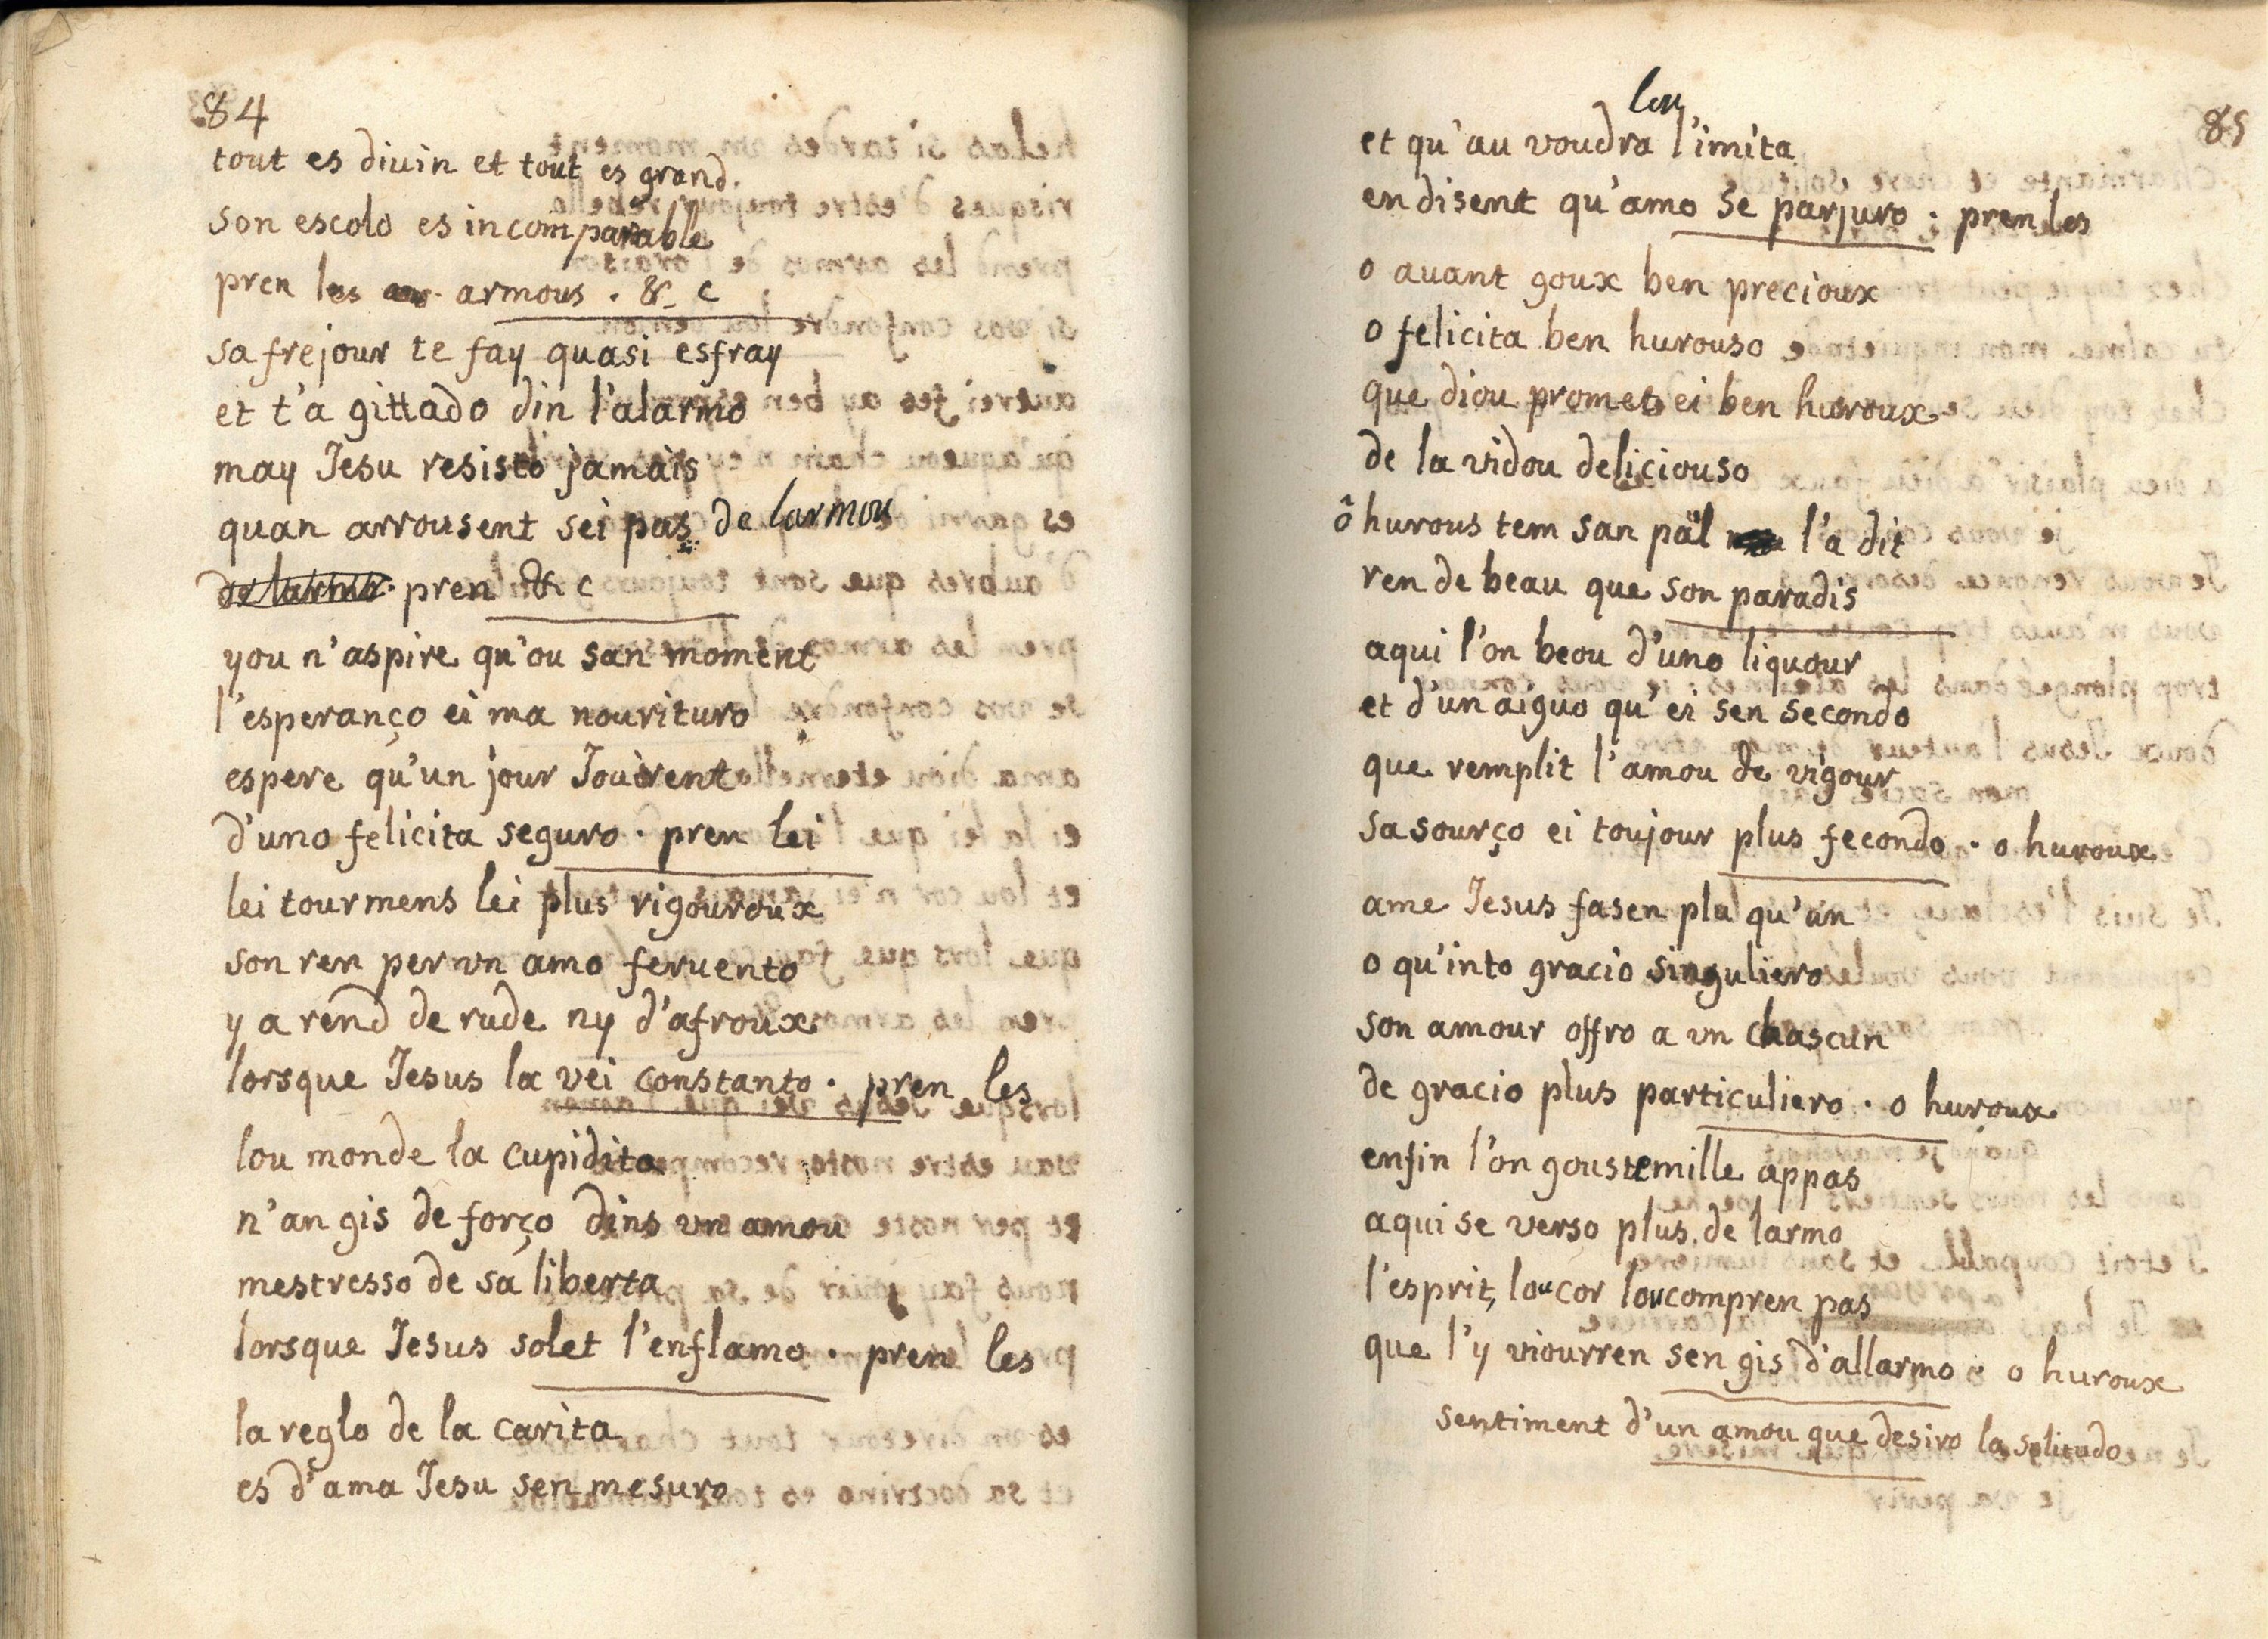 84
tout es diuin et tout es grand.
son escolo es incomparable
pren les armous . &. c
sa frejour te fay quasi esfray
et t'a gittado din l'alarmo
may Jesu resisto jamais
quan arrousent sei pas de larmou
pren &. c
you n'aspire qu'ou san moment
l'esperanço ei ma nourituro
espere qu'un jour Jouirent
d'uno felicita seguro . pren lei
lei tourmens lei plus rigouroux
son ren per vn amo feruento
y a rend de rude ny d'afroux
lorsque Jesus la vei constanto . pren les
lou monde la cupidita
n'an gis de forço dins vn amou
mestresso de sa liberta
lorsque Jesus solet l'enflamo . pren les
la reglo de la carita
es d'ama Jesu sen mesuro
85
lou
et qu'au voudra l'imita
en disent qu'amo se parjuro . pren les
o auant goux ben precioux
o felicita ben hurouso
que diou promet ei ben huroux
de la vidou deliciouso
ô hurous tem san pàl l'a dit
ren de beau que son paradis
aqui l'on beou d'uno liquour
et d'un aiguo qu'ei sen secondo
que remplit l'amou de vigour
sa sourço ei toujour plus fecondo . o huroux
ame Jesus fasen plu qu'un
o qu'into gracio singuliero
son amour offro a vn chascun
de gracio plus particuliero . o huroux
enfin l'on gouste mille appas
aqui se verso plus de larmo
l'esprit, lou cor lou compren pas
que l'y viourren sen gis d'allarmo o huroux
sentiment d'un amou que desiro la solitudo